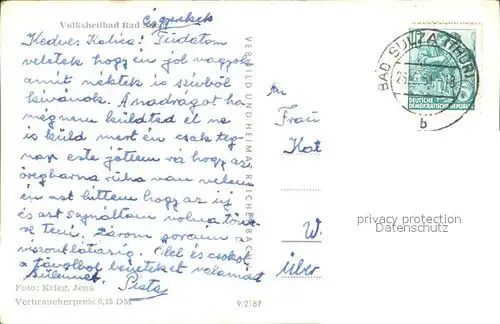 Volksheilbad Bad
és gyerekek
Kedves Katica! Tudatom
veletek hogy én jól vagyok
amit néktek is szívből
kívánok. A nadrágot ha
meg nem küldted el ne
is küld mert én csak teg-
nap este jöttem rá hogy az
öregbarna ruha van velem
én azt hittem hogy az új
és azt sajnáltam volna tönk-
re tenni. Zárom soraim a
viszontlátásig. Ölel és csókol
a távolból benneteket valamint
szüleimet. Pista
Foto: Krieg, Jena
Verbraucherpreis 0,15 DM
9/2187
VERBILD UND HEIMAT REICHENBACH
An
Frau
Kat
W.
über
BAD SULZA (THÜR)
b
DEUTSCHE
DEMOKRATISCHE REPUBLIK
privacy protection
DatenschutzC